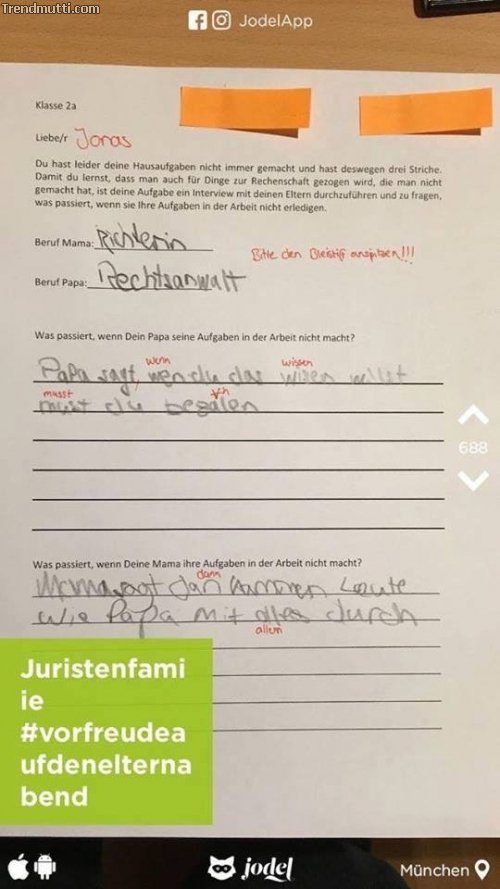 Trendmutti.com
JodelApp
Klasse 2a
Liebe/r Jonas
Du hast leider deine Hausaufgaben nicht immer gemacht und hast deswegen drei Striche.
Damit du lernst, dass man auch für Dinge zur Rechenschaft gezogen wird, die man nicht
gemacht hat, ist deine Aufgabe ein Interview mit deinen Eltern durchzuführen und zu fragen,
was passiert, wenn sie Ihre Aufgaben in der Arbeit nicht erledigen.
Beruf Mama: Richterin
Bitte den Bleistift anspitzen!!!
Beruf Papa: Rechtsanwalt
Was passiert, wenn Dein Papa seine Aufgaben in der Arbeit nicht macht?
wenn wissen
Papa sagt, wen du das wisen wilst
musst h
must du bezalen
688
Was passiert, wenn Deine Mama ihre Aufgaben in der Arbeit nicht macht?
dann
Mama sagt dan kommen Leute
wie Papa mit alles durch
allem
Juristenfami
ie
#vorfreudea
ufdenelterna
bend
jodel
München